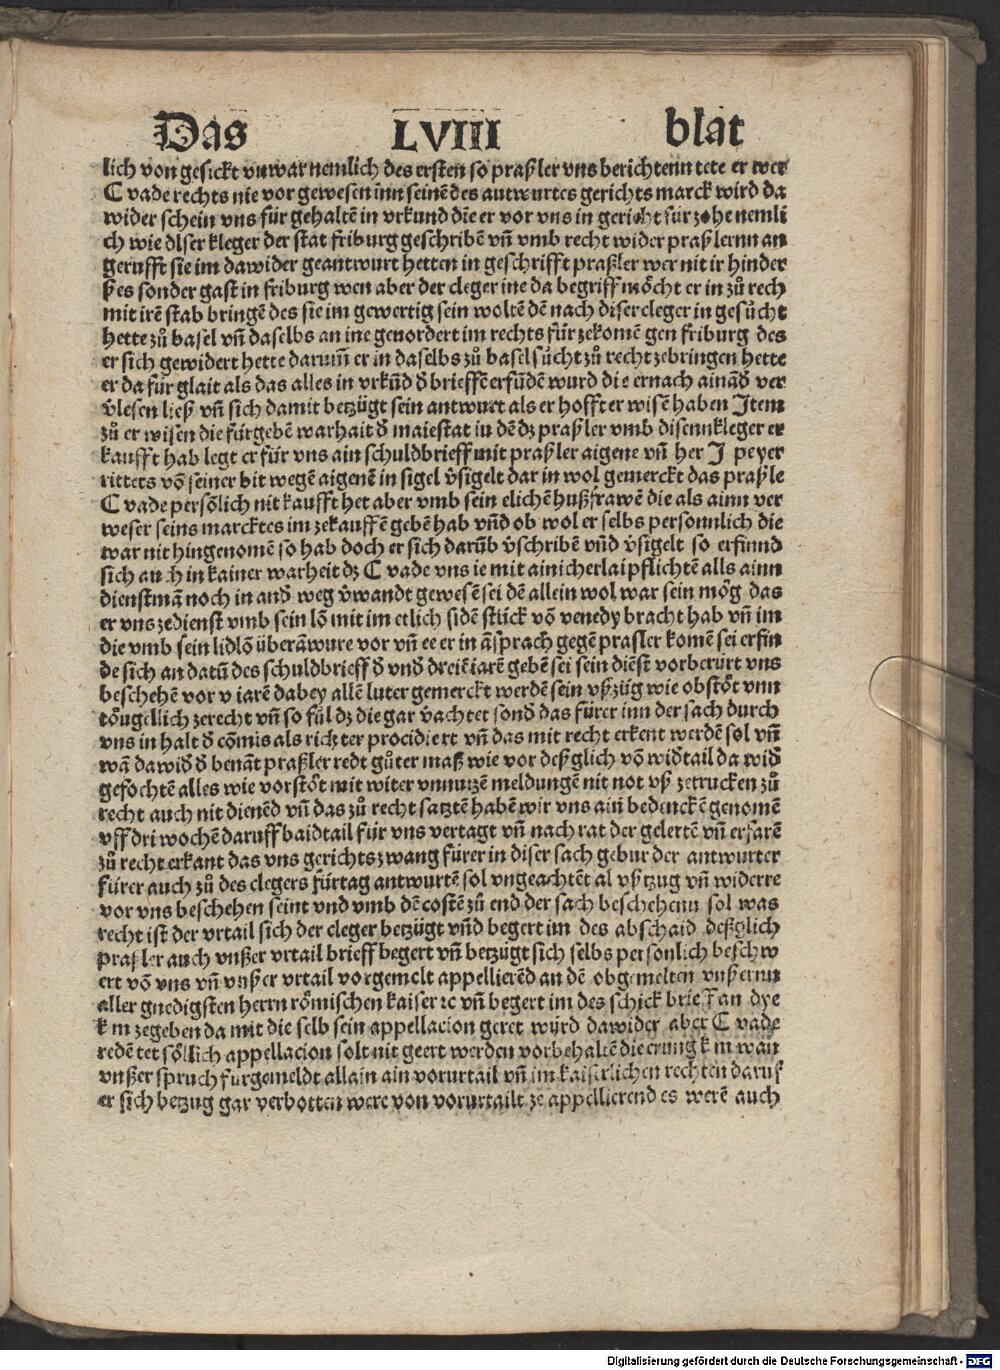 Das LVIII blat
lich von gesickt vn̄ war nemlich des ersten so praßler vns berichtenn tete er wer
C vade rechts nie vor gewesen inn seinē des antwurtes gerichts marck wird da
wider schein vns für gehaltē in vrkund dīe er vor vns in gericht für zohe nemli
ch wie diser kleger der stat friburg geschribē vn̄ vmb recht wider praßlernn an
gerufft sie im dawider geantwurt hetten in geschrifft praßler wer nit ir hinder
ses sonder gast in friburg wen aber der cleger ine da begriff möcht er in zů rech
mit irē stab bringē des sie im gewertig sein woltē dē nach diser cleger in gesůcht
hette zů basel vn̄ daselbs an ine geuordert im rechts für zekomē gen friburg des
er sich gewidert hette darum̄ er in daselbs zů basel sůcht zů recht zebringen hette
er da für glait als das alles in vrkūd d̄ brieffē erfūdē wurd die er nach ainād̄ ver
v̄lesen ließ vn̄ sich damit betzügt sein antwurt als er hofft er wisē haben Item
zů er wisen die fürgebē warhait d̄ maiestat in dē dz praßler vmb disenn kleger er
kaufft hab legt er für vns ain schuldbrieff mit praßler aigene vn̄ her J peyer
ritters vō seiner bit wegē aigenē in sigel v̄sigelt dar in wol gemerckt das praßle
C vade persōlich nit kaufft het aber vmb sein elichē hußfrawē die als ainn ver
weser seins marcktes im zekauffē gebē hab vn̄d ob wol er selbs personnlich die
war nit hingenomē so hab doch er sich darūb v̄schribē vn̄d v̄sigelt so erfinnd
sich auch in kainer warheit dz C vade vns ie mit ainicherlai pflichtē alls ainn
dienstmā noch in and̄ weg v̄wandt gewesē sei dē allein wol war sein mög das
er vns zedienst vmb sein lō mit im etlich sidē stück vō venedy bracht hab vn̄ im
die vmb sein lidlō überāwure vor vn̄ ee er in āsprach gegē prasler komē sei erfin
de sich an datū des schuldbrieff d̄ vnd̄ dreiē iarē gebē sei sein diēst vorberürt vns
beschehē vor v iarē dabey allē luter gemerckt werdē sein vßzüg wie obstōt vnn
tōugellich zerecht vn̄ so fül dz die gar v̄achtet sond̄ das fürer inn der sach durch
vns in halt d̄ cōmis als richter procidiert vn̄ das mit recht erkent werdē sol vn̄
wā dawid̄ d̄ benāt praßler redt gůter maß wie vor deßglich vō widtail da wid̄
gefochtē alles wie vorstōt mit witer vnnutzē meldungē nit not vß zetrucken zů
recht auch nit dienēd vn̄ das zů recht satztē habē wir vns ain bedenckē genomē
vff dri wochē daruff baidtail für vns vertagt vn̄ nach rat der gelertē vn̄ erfarē
zů recht erkant das vns gerichtszwang fürer in diser sach gebur der antwurter
fürer auch zů des clegers fürtag antwurtē sol vngeachtēt al vßtzug vn̄ widerre
vor vns beschehen seint vnd vmb dē costē zů end der sach beschehenn sol was
recht ist der vrtail sich der cleger betzügt vn̄d begert im des abschaid deßglich
praßler auch vnßer vrtail brieff begert vn̄ betzügt sich selbs personlich beschw
ert vō vns vn̄ vnßer vrtail vorgemelt appellierēd an dē obgemelten vnßernn
aller gnedigsten herrn römischen kaiser ꝛc vn̄ begert im des schick brieff an dye
k m zegeben da mit die selb sein appellacion geret würd dawider aber C vade
redē tet söllich appellacion solt nit geert werden vorbehaltē die erung k m wan
vnßer spruch furgemeldt allain ain vorurtail vn̄ im kaiserlichen rechten daruf
er sich betzug gar verbotten were von vorurtailt ze appellierend es werē auch
Digitalisierung gefördert durch die Deutsche Forschungsgemeinschaft - DFG